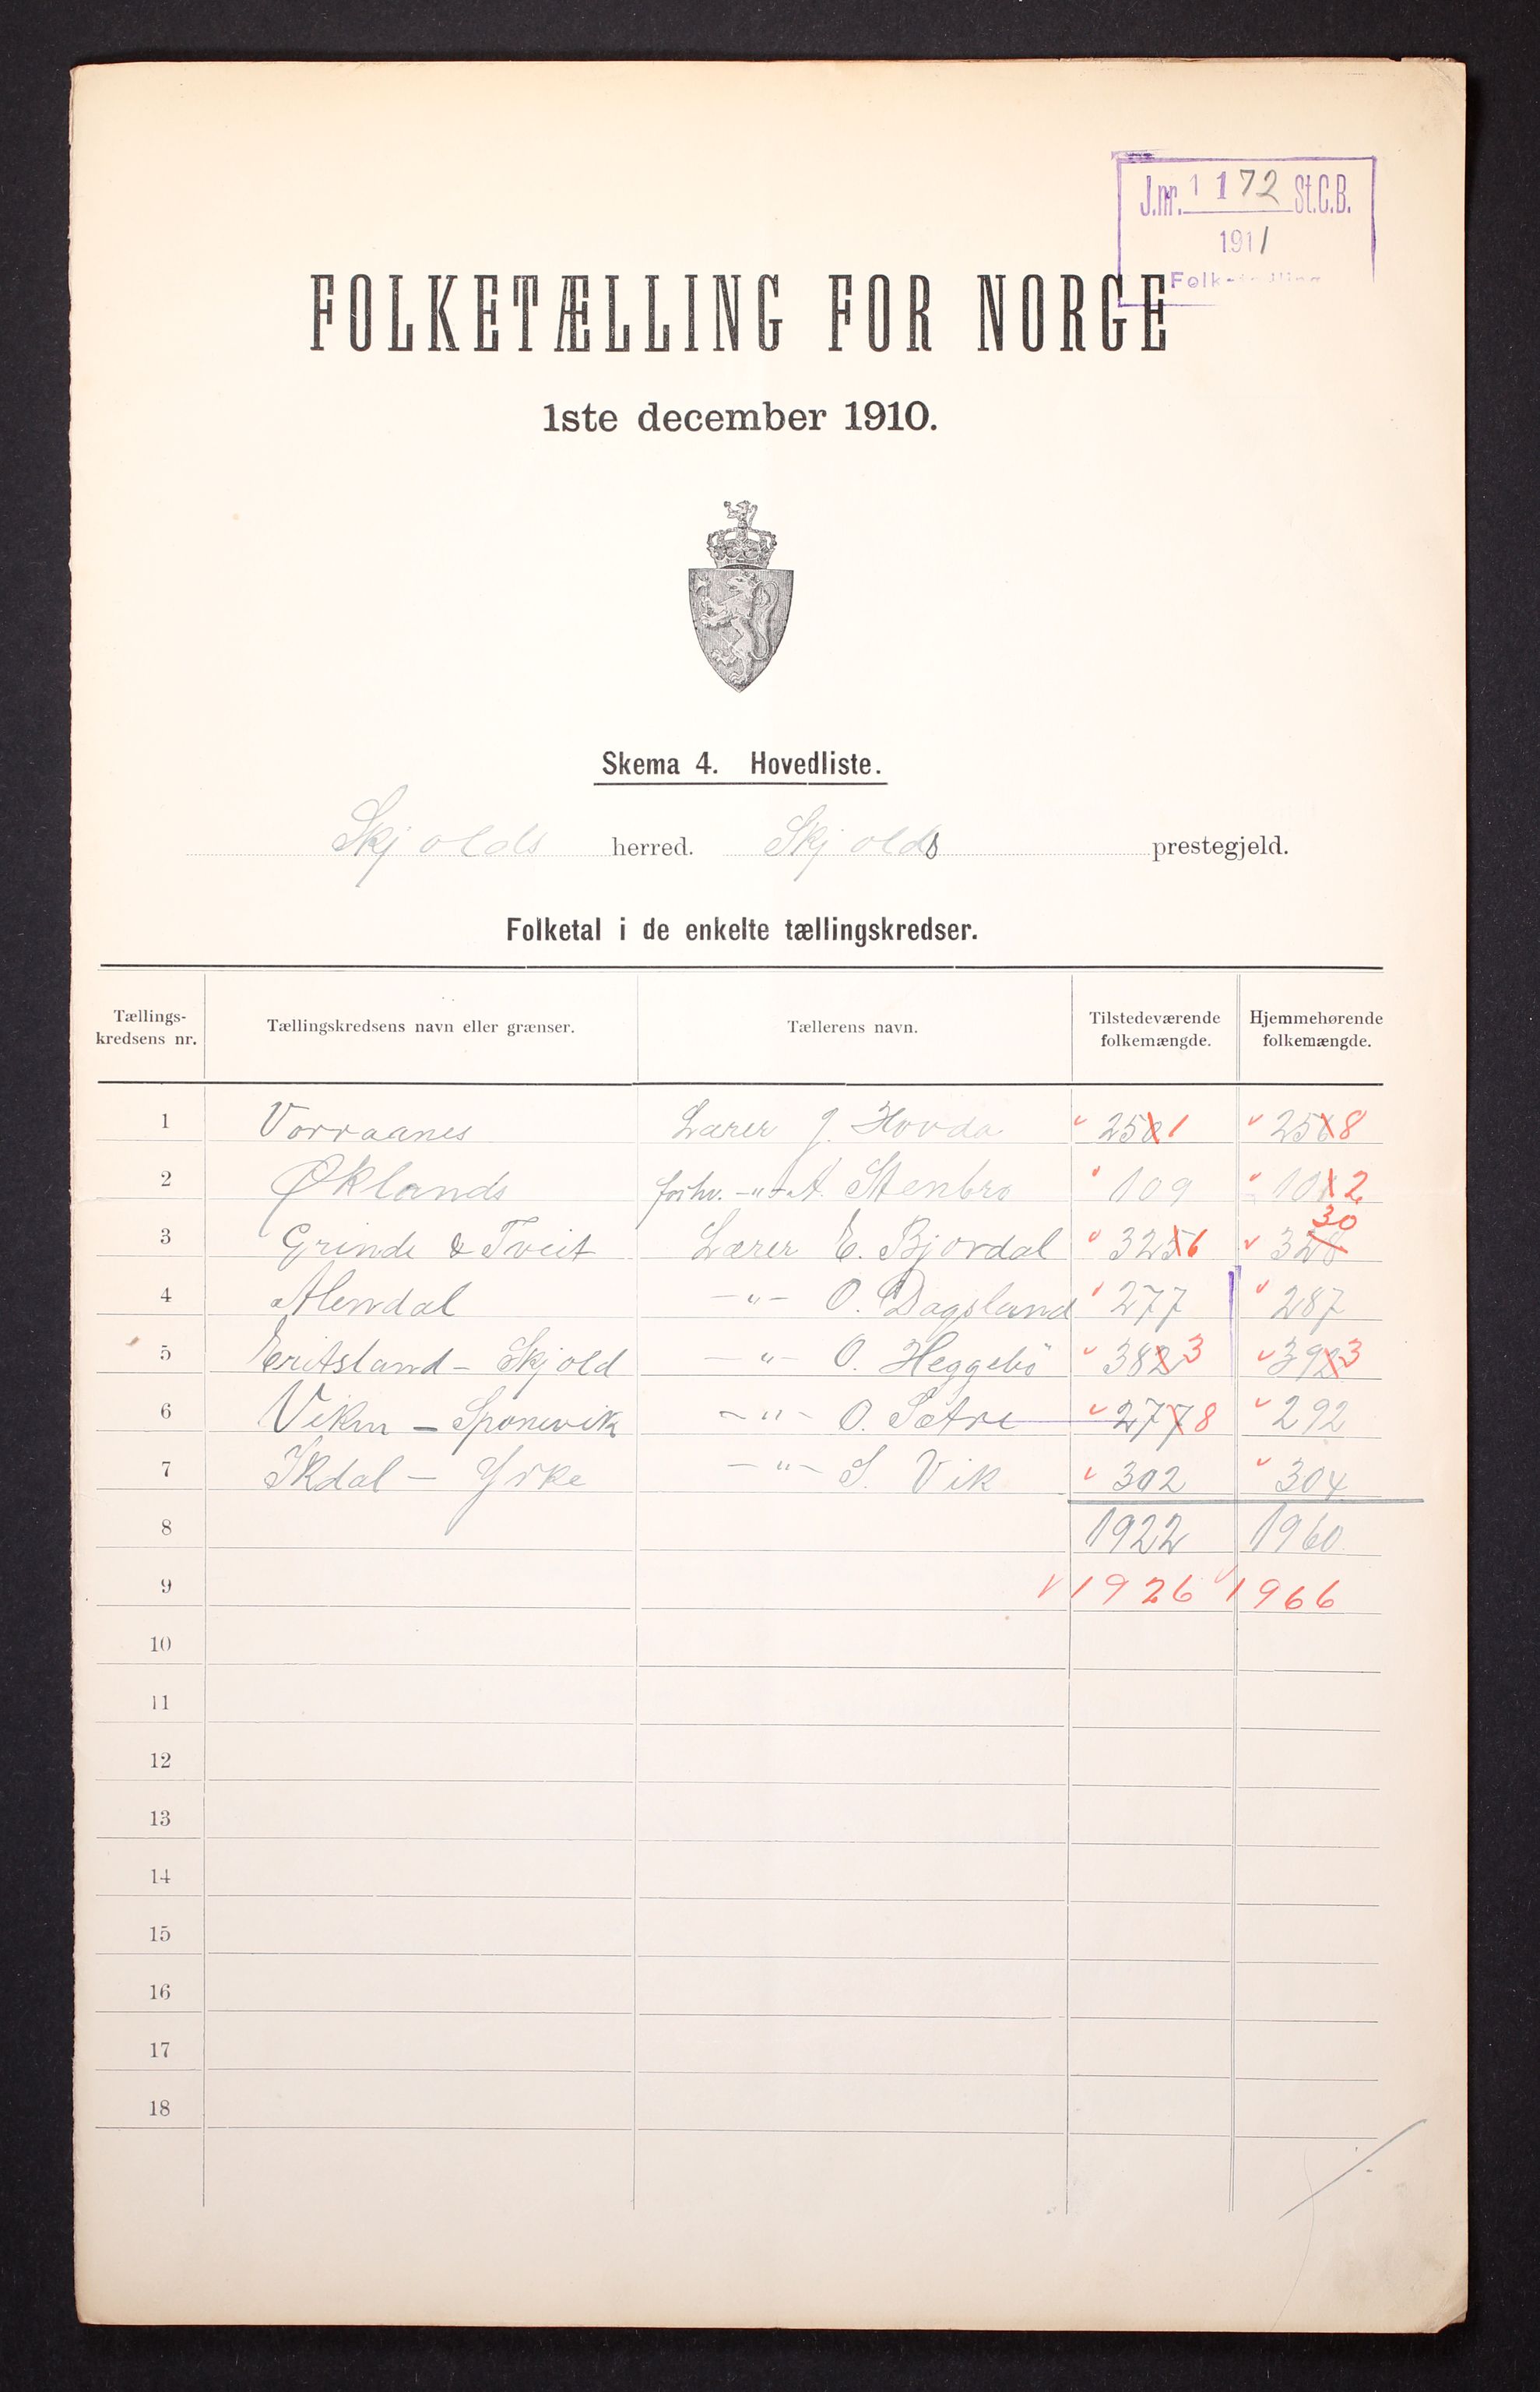 J.nr. 1172 St.C.B.
1911
FOLKETÆLLING FOR NORGE
1ste december 1910.
Skema 4. Hovedliste.
Skjolds herred. Skjolds prestegjeld.
Folketal i de enkelte tællingskredser.
Tællings-kredsens nr. Tællingskredsens navn eller grænser. Tællerens navn. Tilstedeværende folkemængde. Hjemmehørende folkemængde.
1 Vorraanes Lærer J. Hovda 251 258
2 Øklands forhv. -"- A. Stenbro 109 102
3 Grinde & Tveit Lærer E. Bjordal 326 330
4 Alendal -"- O. Dagsland 277 287
5 Eritsland - Skjold -"- O. Heggebö 383 393
6 Vikm - Sponevik -"- O. Sætre 278 292
7 Ilsdal - Yrke -"- S. Vik 302 304
8 1922 1960
9 1926 1966
10
11
12
13
14
15
16
17
18